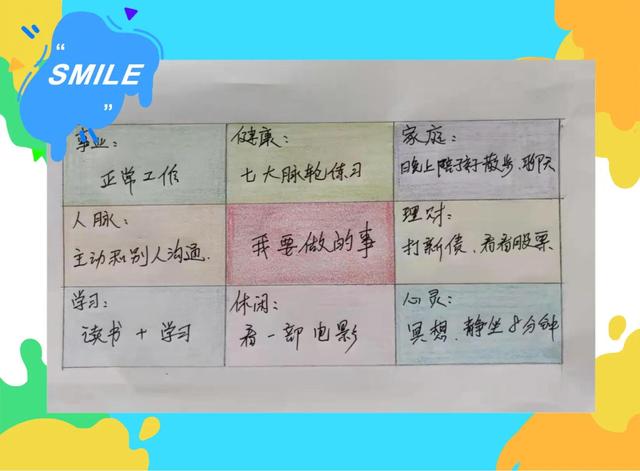 “SMILE”
事业:
正常工作
健康:
七大脉轮练习
家庭:
晚上陪 散步、聊天
人脉:
主动和别人沟通.
我要做的事
理财:
打新债、看看股票
学习:
读书 + 学习
休闲:
看一部电影
心灵:
冥想、静坐8分钟